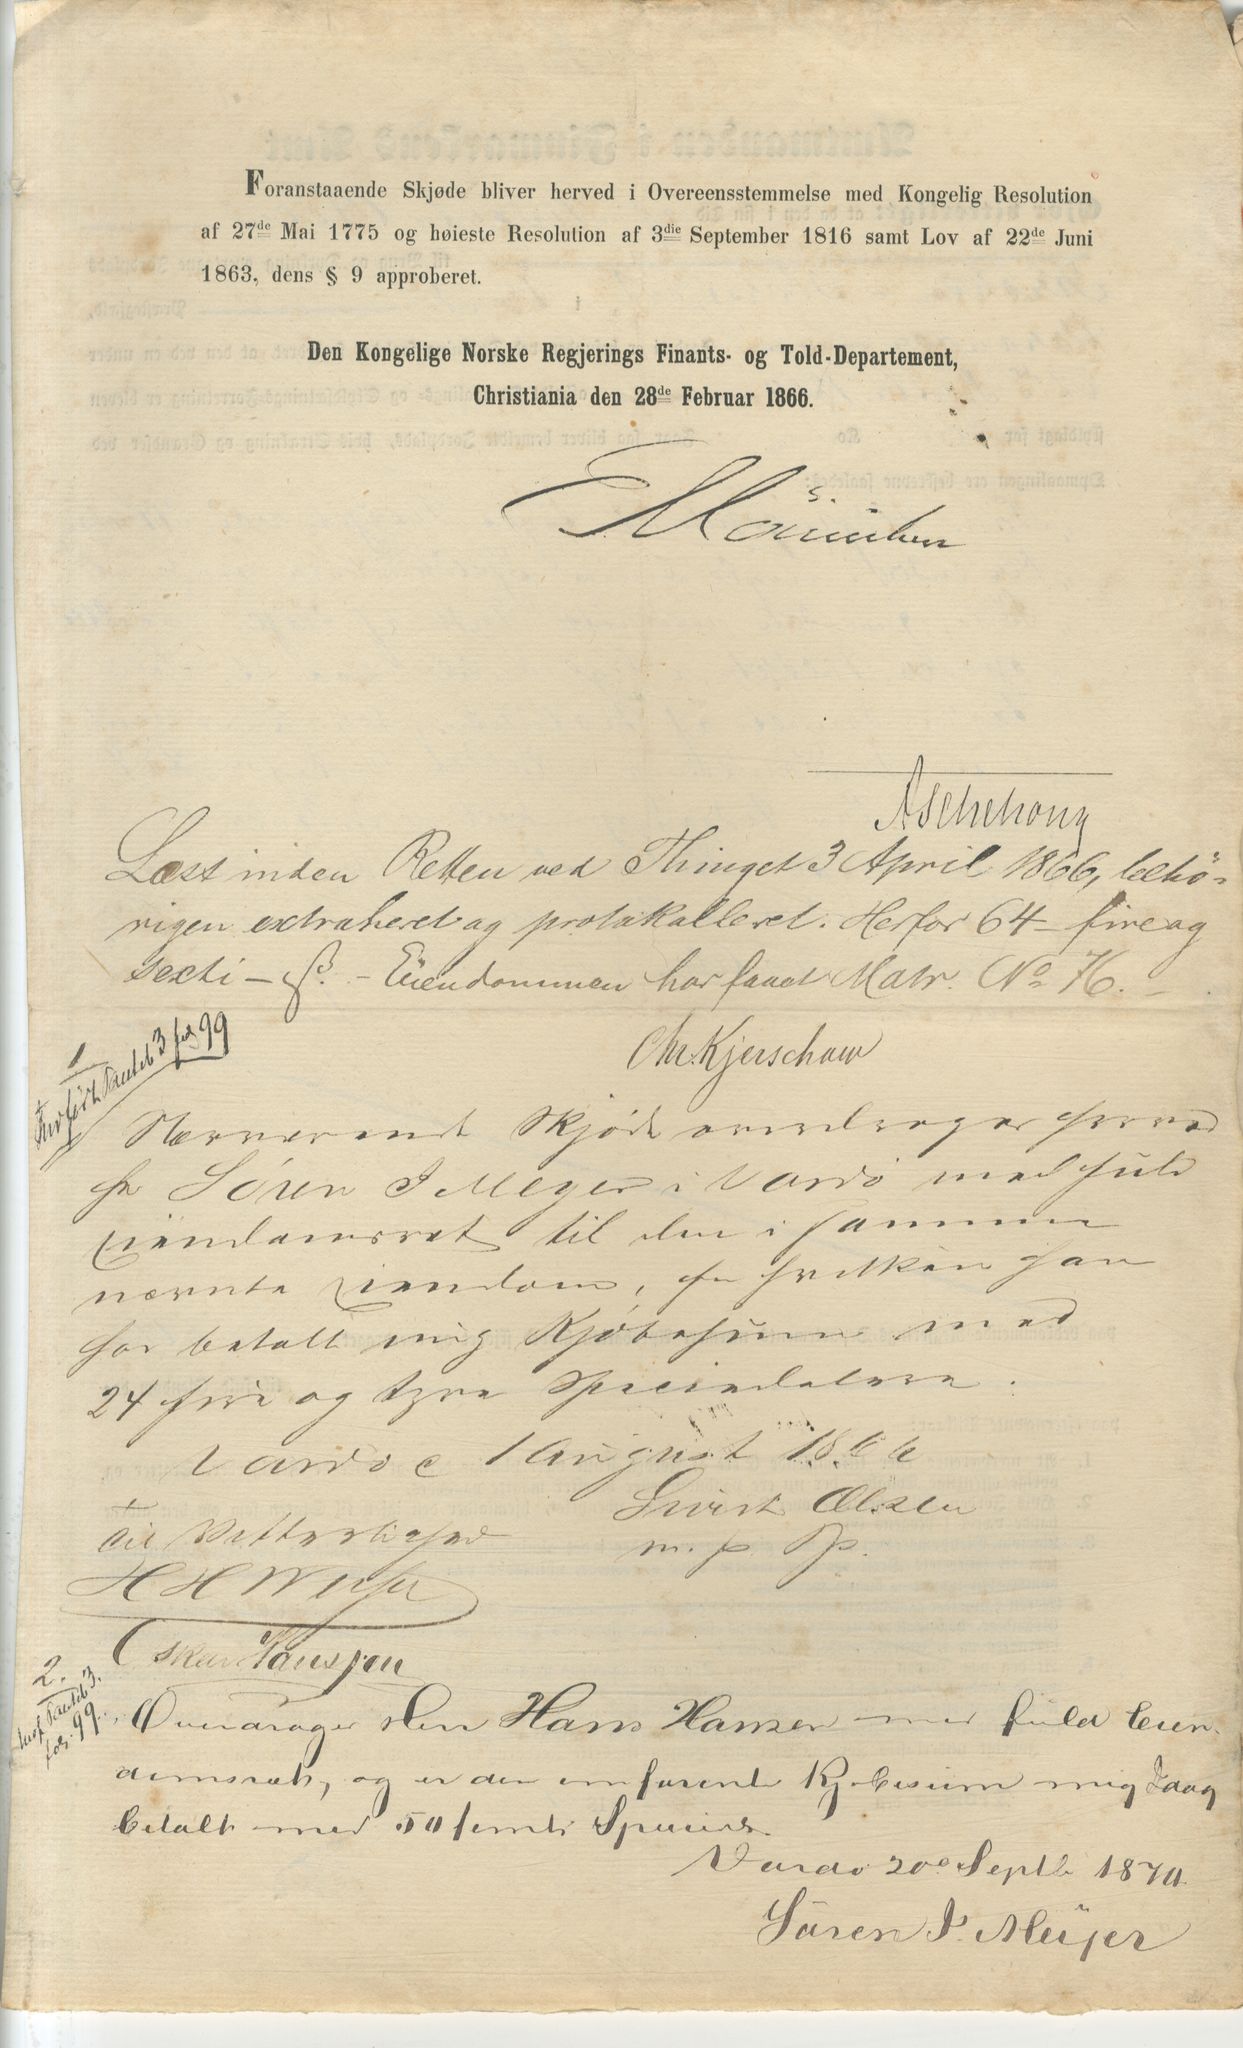 Foranstaaende Skjøde bliver herved i Overeensstemmelse med Kongelig Resolution
af 27de Mai 1775 og høieste Resolution af 3die September 1816 samt Lov af 22de Juni
1863, dens § 9 approberet.
Den Kongelige Norske Regjerings Finants- og Told-Departement,
Christiania den 28de Februar 1866.
Aschehoug
Læst inden Retten ved Thinget 3 April 1866, behö-
rigen extraheret og protokolleret. Herfor 64 – fire og
sexti – ß. – Eiendommen har faaet Matr. No 76. –
Chr. Kjerschow
1
Nærværende Skjøde overdrages herved
hr Søren J Meyer i Vardø med fuld
Eiendomsret til den i samme
nævnte Eiendom, for hvilken han
har betalt mig Kjøbesum med
24 fire og tyve Speciedalere.
Vardø e 1 August 1866
Sivert Olsen
m. p. P.
Til Vitterlighed
H H
Oskar Hansjen
2.
Overdrages den Hans Hansen med fuld Eien-
domsret, og er den omforente Kjøbesum mig Idag
betalt med 50 femti Species.
Vardø 20e Septb 1870
Søren J. Meijer